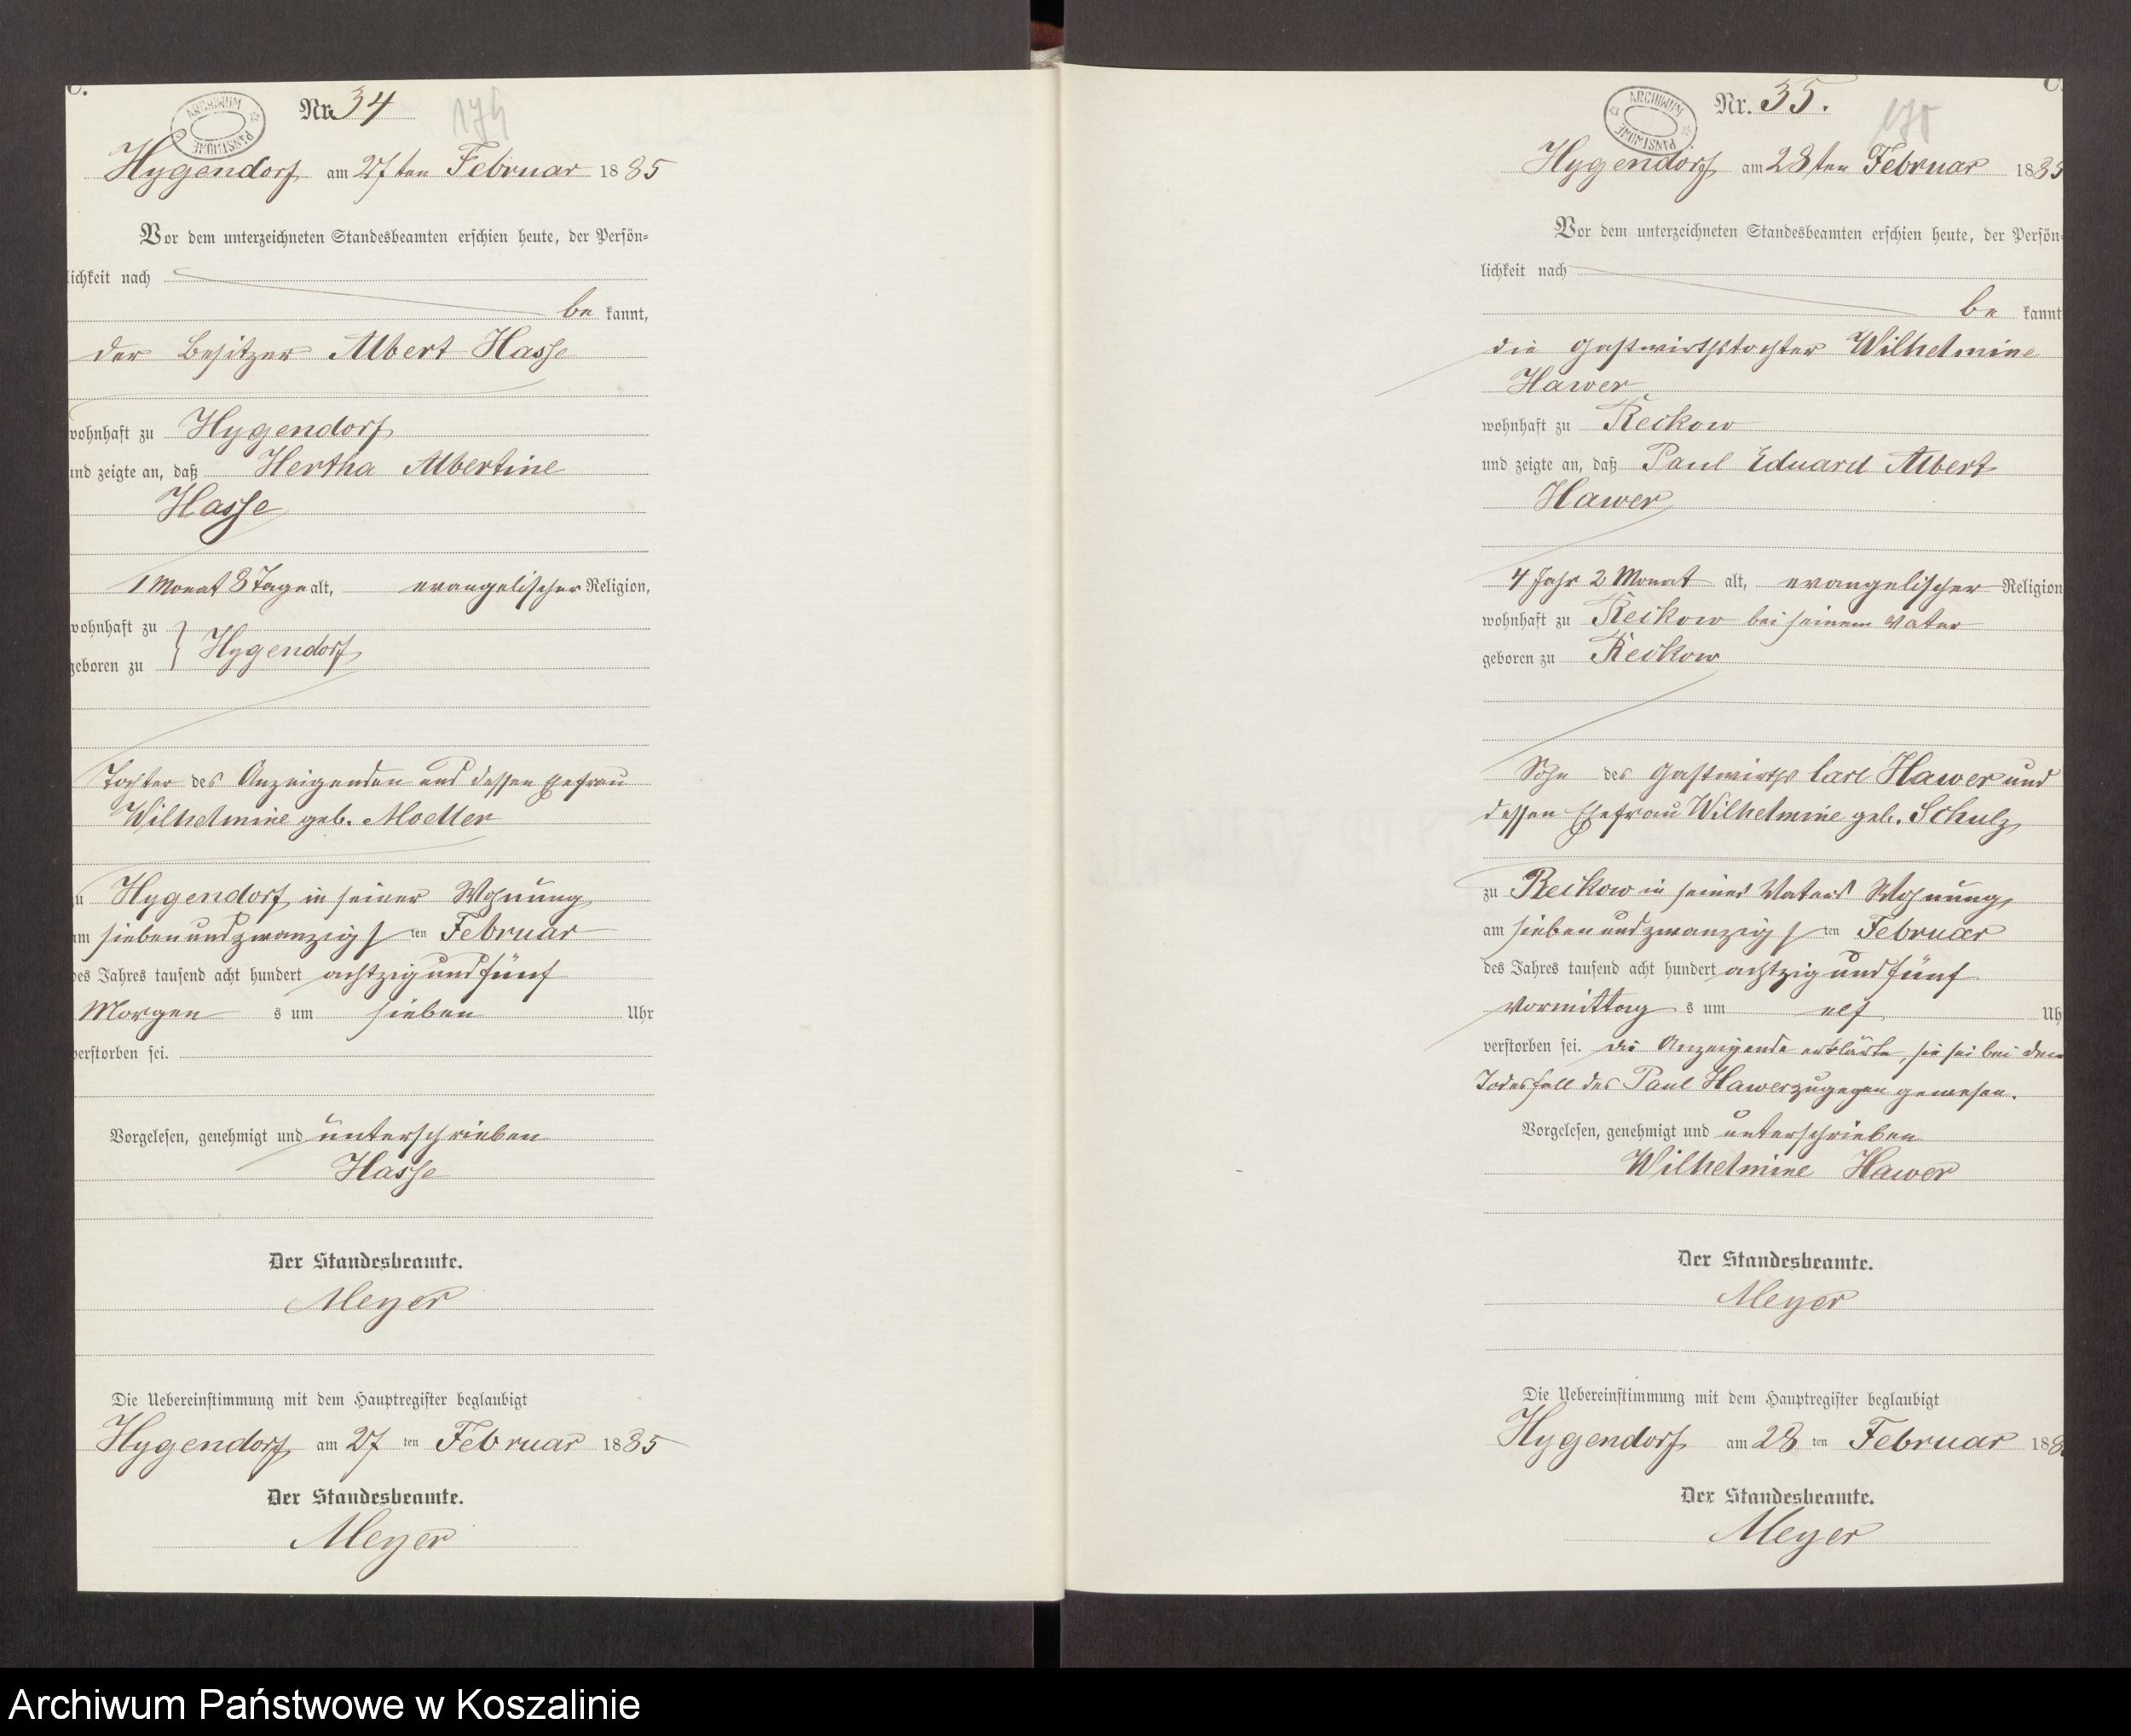 C.
ARCHIWUM PAŃSTWOWE
Nr. 34
174
Hygendorf am 27ten Februar 1885
Vor dem unterzeichneten Standesbeamten erschien heute, der Persön-
lichkeit nach
be kannt,
der Besitzer Albert Hasse
wohnhaft zu Hygendorf
und zeigte an, daß Hertha Albertine
Hasse
1 Monat 8 Tage alt, evangelischer Religion,
wohnhaft zu
Hygendorf
geboren zu
Tochter des Anzeigenden und dessen Ehefrau
Wilhelmine geb. Moeller
zu Hygendorf in seiner Wohnung
am siebenundzwanzigsten Februar
des Jahres tausend acht hundert achtzig und fünf
Morgen s um sieben Uhr
verstorben sei.
Vorgelesen, genehmigt und unterschrieben
Hasse
Der Standesbeamte.
Meyer
Die Uebereinstimmung mit dem Hauptregister beglaubigt
Hygendorf am 27 ten Februar 1885
Der Standesbeamte.
Meyer
C.
ARCHIWUM PAŃSTWOWE
Nr. 35.
175
Hygendorf am 28ten Februar 1885
Vor dem unterzeichneten Standesbeamten erschien heute, der Persön-
lichkeit nach
be kannt
die Gastwirthstochter Wilhelmine
Hawer
wohnhaft zu Reckow
und zeigte an, daß Paul Eduard Albert
Hawer
4 Jahr 2 Monat alt, evangelischer Religion
wohnhaft zu Reckow bei seinem Vater
geboren zu Reckow
Sohn des Gastwirths Carl Hawer und
dessen Ehefrau Wilhelmine geb. Schulz
zu Reckow in seines Vaters Wohnung
am siebenundzwanzigsten Februar
des Jahres tausend acht hundert achtzig und fünf
Vormittag s um elf Uh
verstorben sei. Die Anzeigende erklärte, sie sei bei dem
Todesfall des Paul Hawer zugegen gewesen.
Vorgelesen, genehmigt und unterschrieben
Wilhelmine Hawer
Der Standesbeamte.
Meyer
Die Uebereinstimmung mit dem Hauptregister beglaubigt
Hygendorf am 28 ten Februar 188
Der Standesbeamte.
Meyer
Archiwum Państwowe w Koszalinie